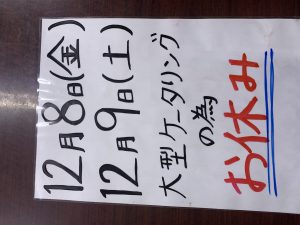 12月8日(金)
12月9日(土)
大型ケータリング
の為
お休み